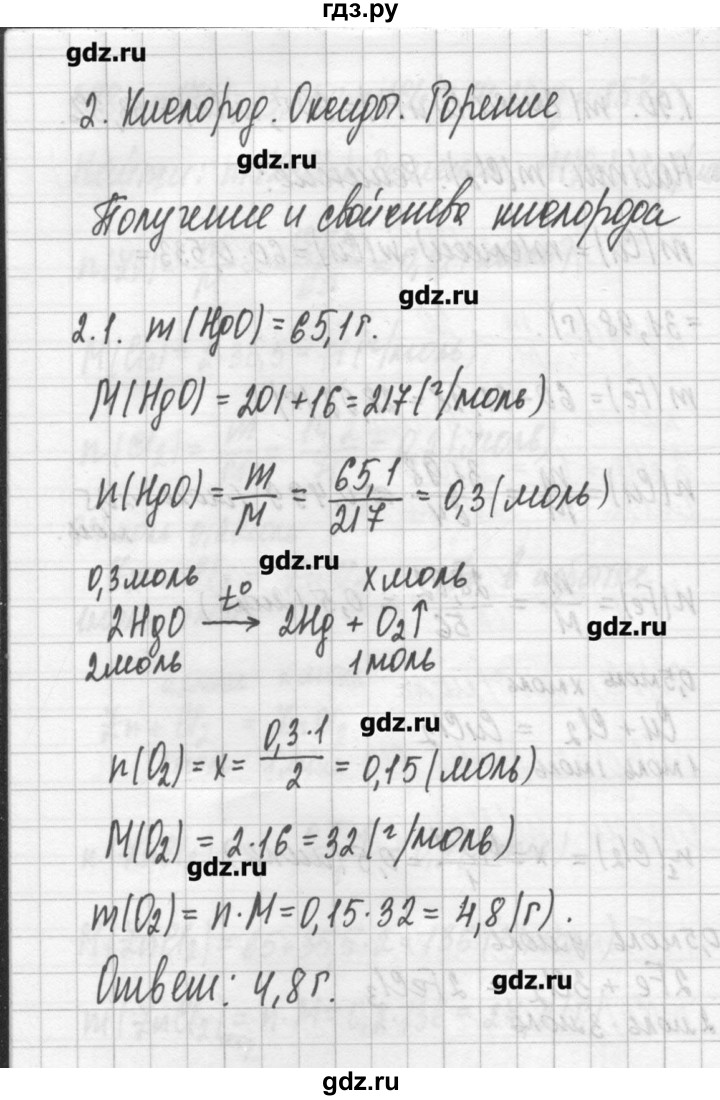 гдз.ру
gdz.ru
2. Кислород. Оксиды. Горение
gdz.ru
Получение и свойства кислорода
gdz.ru
2.1. m(HgO) = 65,1г.
M(HgO) = 201+16 = 217(г/моль)
n(HgO) = m/M = 65,1/217 = 0,3(моль)
gdz.ru
0,3моль xмоль
2HgO t° → 2Hg + O₂↑
gdz.ru
2моль 1моль
gdz.ru
n(O₂) = x = 0,3·1/2 = 0,15(моль)
M(O₂) = 2·16 = 32(г/моль)
gdz.ru
m(O₂) = n·M = 0,15·32 = 4,8(г).
Ответ: 4,8г.
gdz.ru
gdz.ru